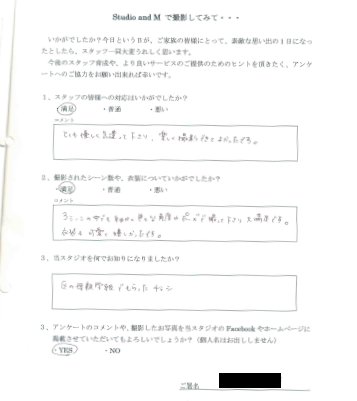 Studio and M で撮影してみて・・・
いかがでしたか？今日という日が、ご家族の皆様にとって、素敵な思い出の1日になっ
たとしたら、スタッフ一同大変うれしく思います。
今後のスタッフ育成や、より良いサービスのご提供のためのヒントを頂きたく、アンケ
ートへのご協力をお願い出来れば幸いです。
1、スタッフの皆様への対応はいかがでしたか？
・満足 ・普通 ・悪い
コメント
とても優しく気遣って下さり、楽しく撮影できてよかったです。
2、撮影されたシーン数や、衣装についていかがでしたか？
・満足 ・普通 ・悪い
コメント
3シーンの中でも 色々な角度や で撮って下さり大満足です。
衣装も可愛く嬉しかったです。
3、当スタジオを何でお知りになりましたか？
の母親学級でもらったチラシ
3、アンケートのコメントや、撮影したお写真を当スタジオの Facebook やホームページに
掲載させていただいてもよろしいでしょうか？（個人名はお出ししません）
・YES ・NO
ご署名